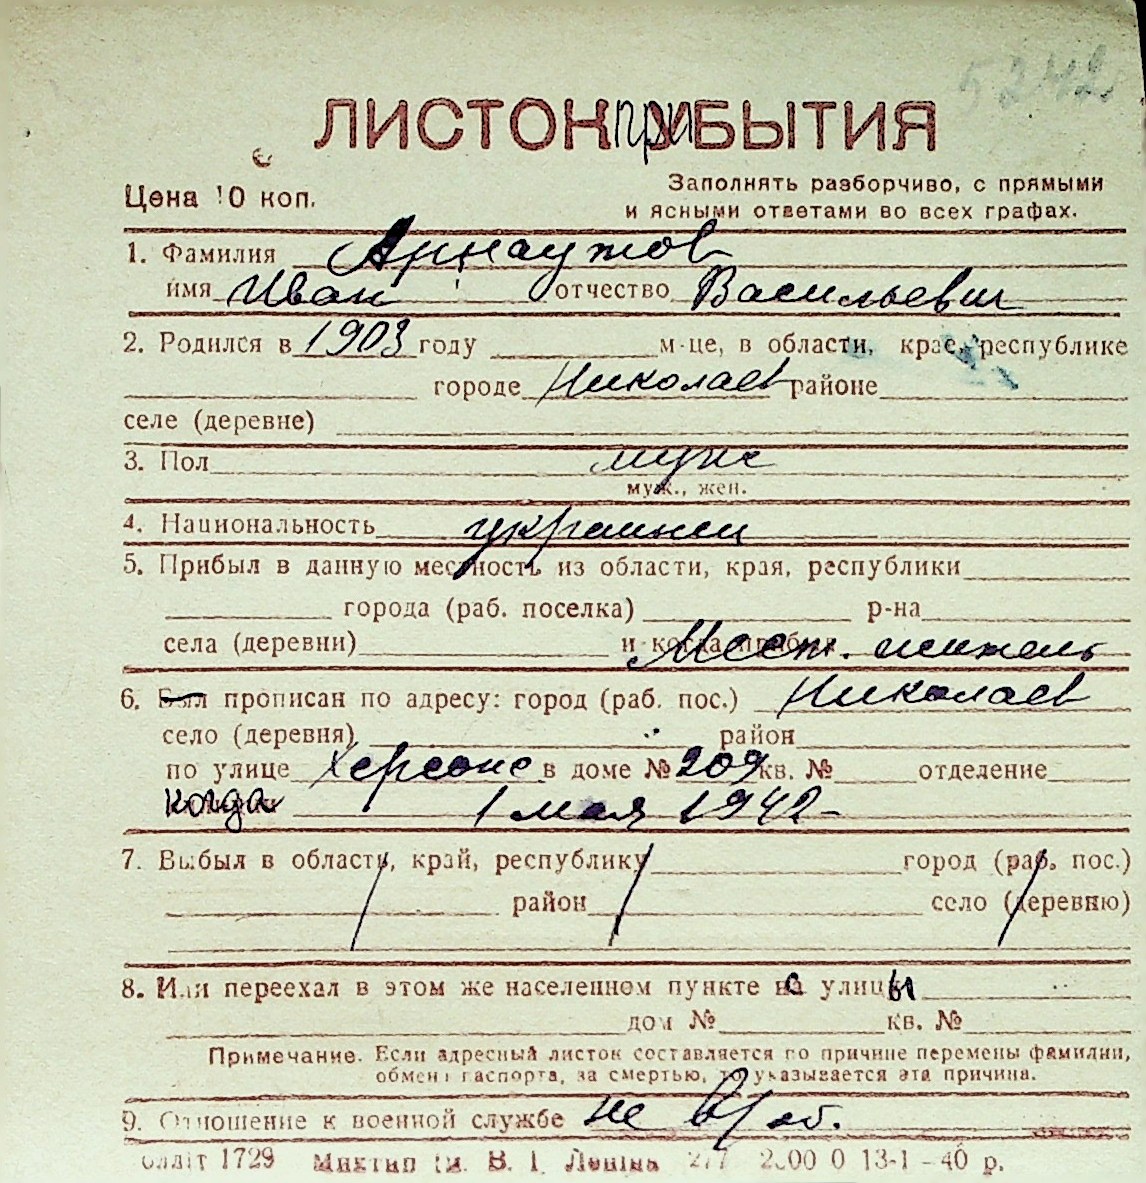 5242
ЛИСТОК ПРИБЫТИЯ
Цена 10 коп.
Заполнять разборчиво, с прямыми
и ясными ответами во всех графах.
1. Фамилия Арнаутов
имя Иван отчество Васильевич
2. Родился в 1903 году м-це, в области, крае, республике
городе Николаев районе
селе (деревне)
3. Пол муж
муж., жен.
4. Национальность украинец
5. Прибыл в данную местность из области, края, республики
города (раб. поселка) р-на
села (деревни) и когда прибыл Мест. житель
6. Был прописан по адресу: город (раб. пос.) Николаев
село (деревня) район
по улице Херсонс в доме № 209 кв. № отделение
когда 1 мая 1942-
7. Выбыл в область, край, республику город (раб. пос.)
район село (деревню)
8. Или переехал в этом же населенном пункте с улицы
дом № кв. №
Примечание. Если адресный листок составляется по причине перемены фамилии,
обмена паспорта, за смертью, то указывается эта причина.
9. Отношение к военной службе не в/об.
1729 В. І. Леніна 13-1-40 р.